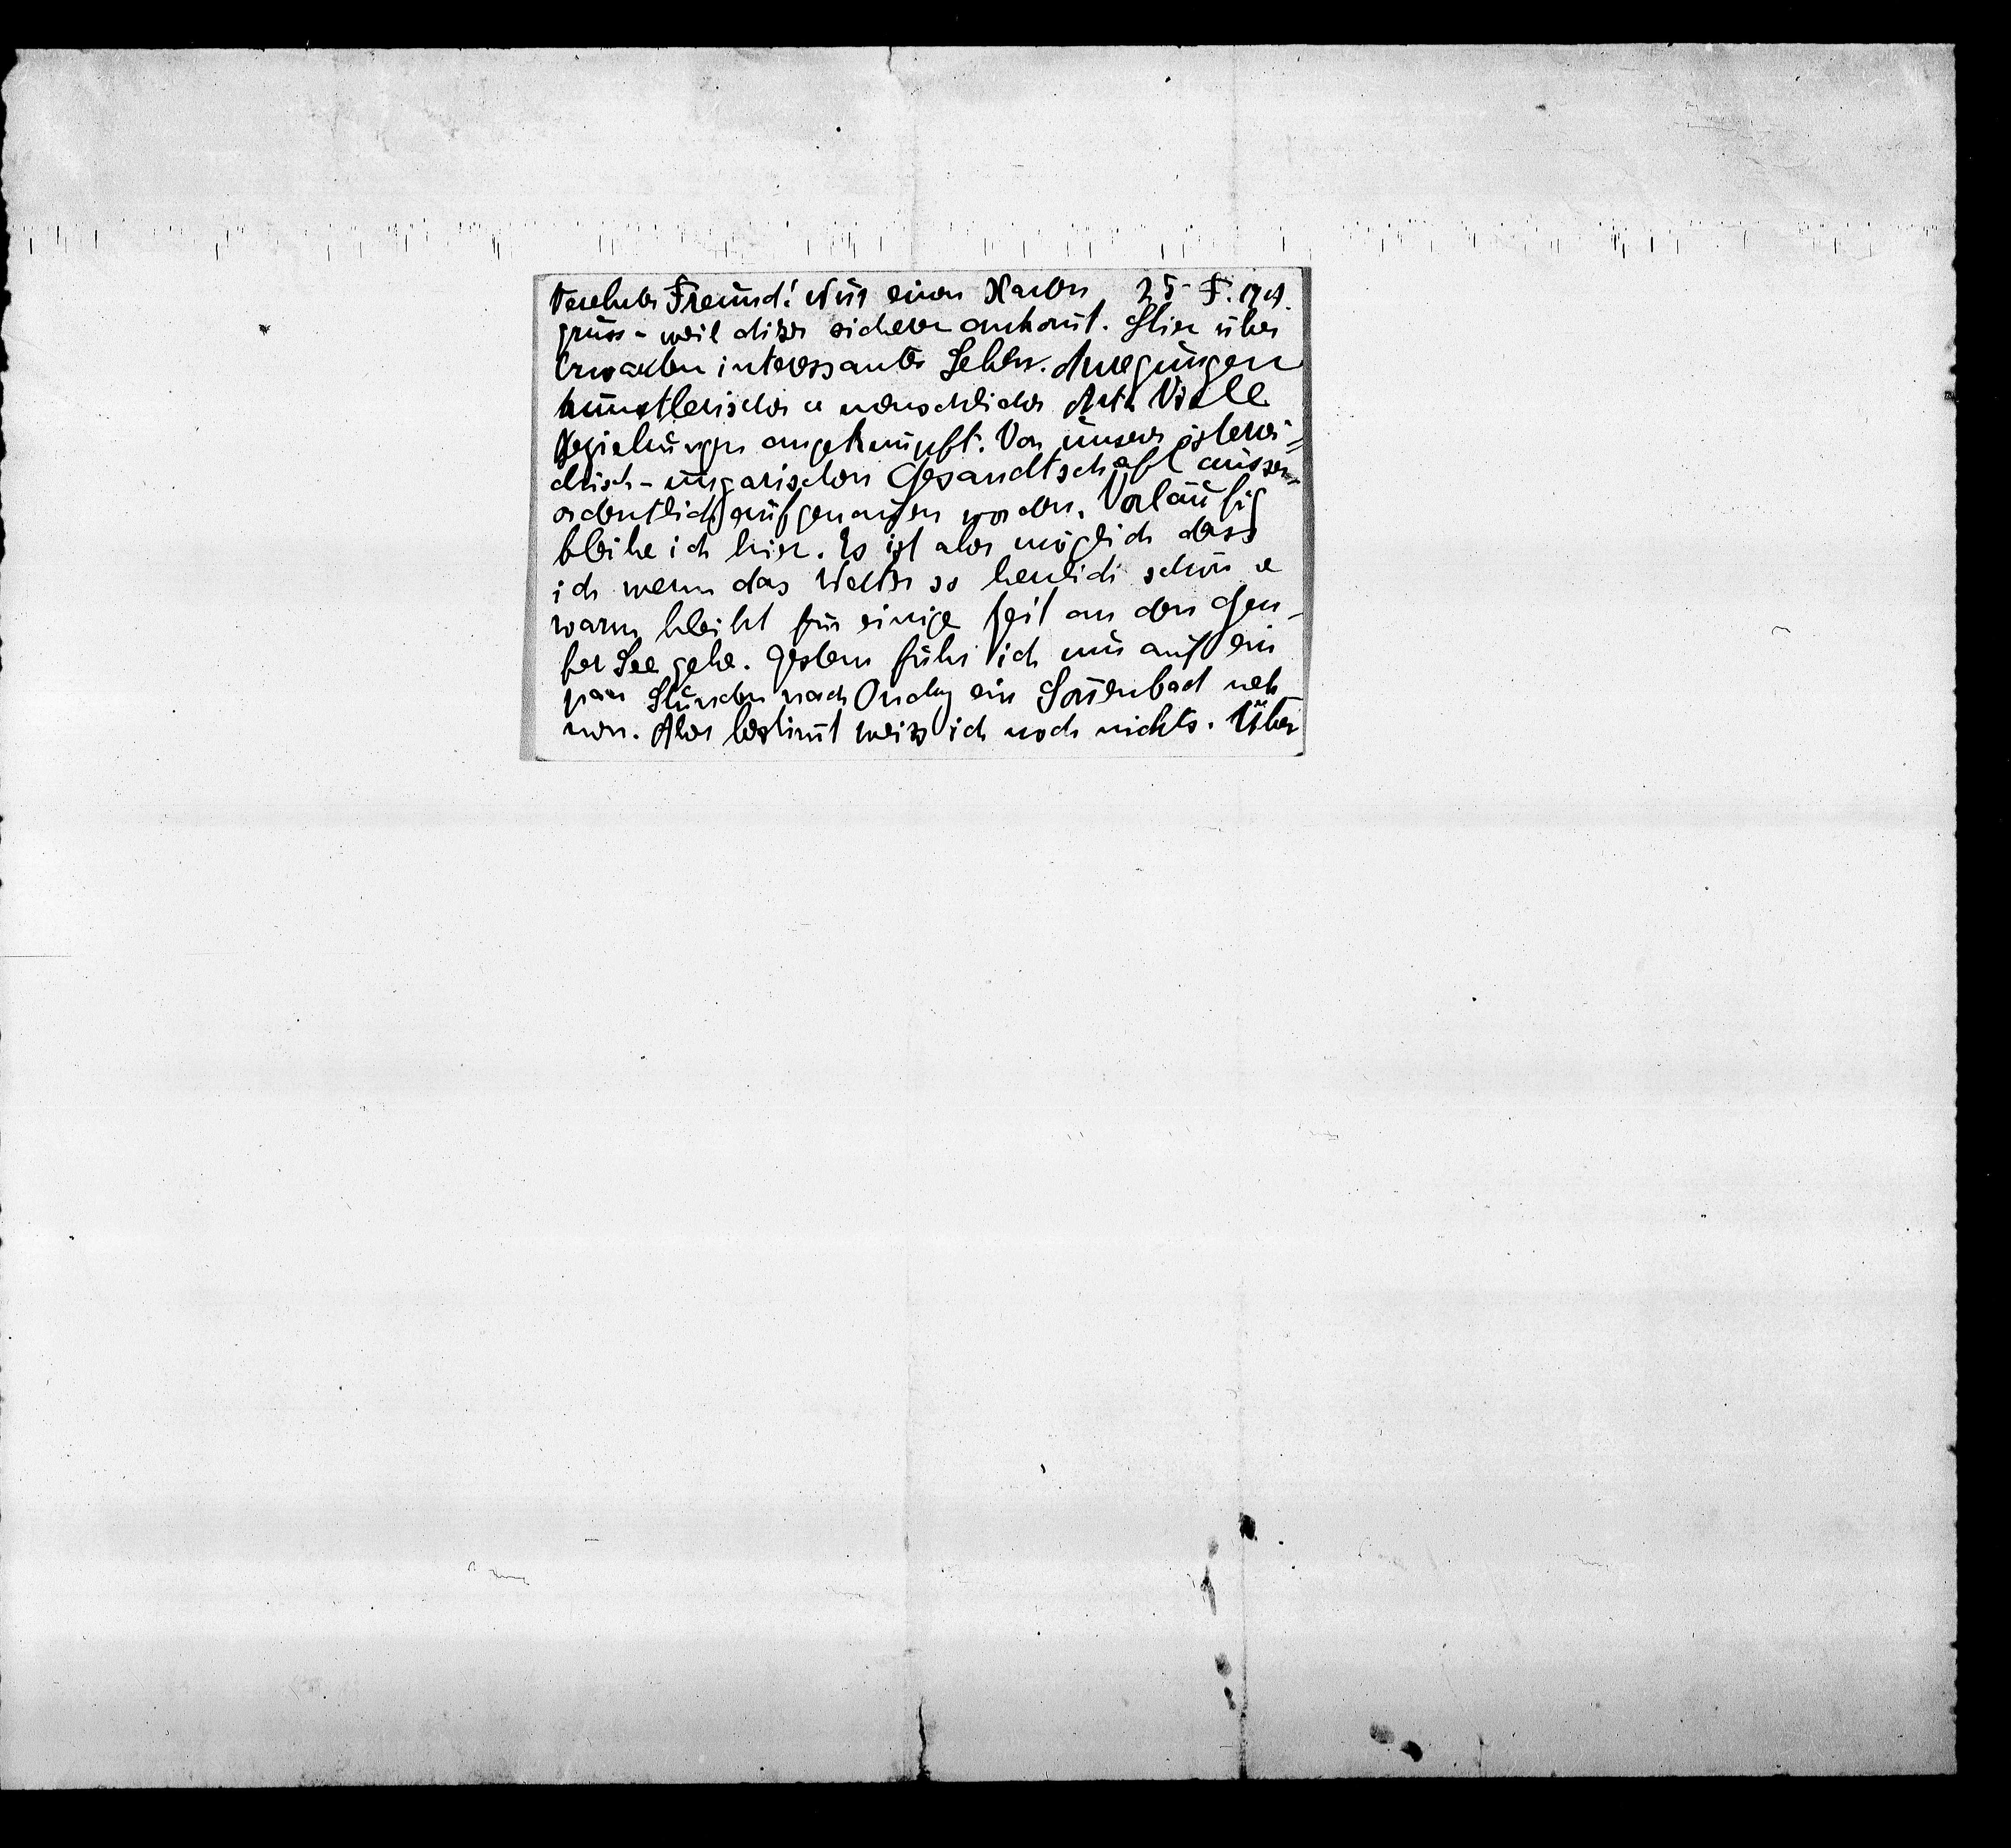 Verehrter Freund! Nur einen Karten
gruss - weil dieser sicherer ankom̄t. Hier über
Erwarten interessantes Leben. Anregungen
künstlerischer u menschlicher Art. Viele
Beziehungen angeknüpft. Von unserer österrei-
chisch-ungarischen Gesandtschaft ausser
ordentlich aufgenom̄en worden. Vorläufig
bleibe ich hier. Es ist aber möglich dass
ich wenn das Wetter so herrlich schön u
warm bleibt für einige Zeit an den Gen-
fer See gehe. Gestern fuhr ich nur auf ein
paar Stunden nach Ouchy ein Son̄enbad neh-
men. Aber bestim̄t weiss ich noch nichts. Über